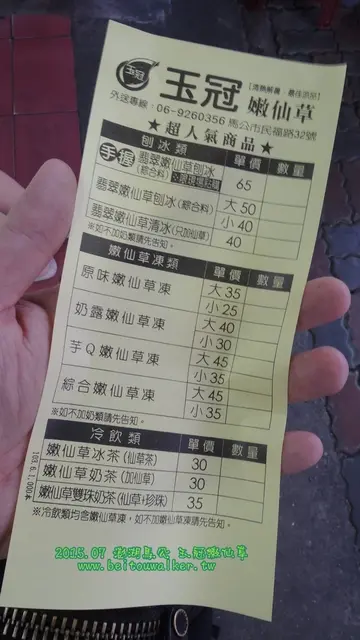 玉冠
玉冠 嫩仙草
【清熱解膚．最佳涼品】
外送專線：06-9260356 馬公市民福路32號
★超人氣商品★
刨冰類 單價 數量
手握 翡翠嫩仙草刨冰 65
(綜合料)
翡翠嫩仙草刨冰(綜合料) 大50
小40
翡翠嫩仙草清冰(只加仙草) 40
※如不加奶類請先告知。
嫩仙草凍類 單價 數量
原味嫩仙草凍 大35
小25
奶露嫩仙草凍 大40
小30
芋Q嫩仙草凍 大45
小35
綜合嫩仙草凍 大45
小35
※如不加奶類請先告知。
冷飲類 單價 數量
嫩仙草冰茶(仙草茶) 30
嫩仙草奶茶(加仙草) 30
嫩仙草雙珠奶茶(仙草+珍珠) 35
※冷飲類均含嫩仙草凍，如不加嫩仙草凍請先告知。
2015.07 澎湖馬公 玉冠嫩仙草
www.beitouwalker.tw